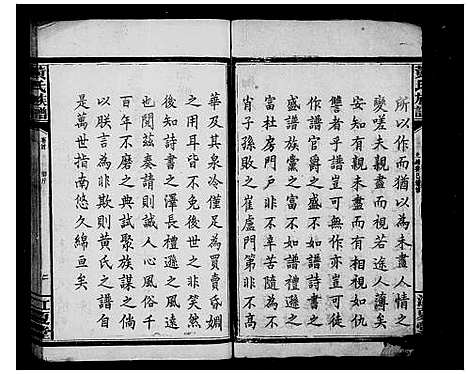 所以作而猶以為未盡人情之
變嗟夫親盡而視若途人薄矣
安知有親未盡而有不相往来
譬者乎譜豈可無作亦豈可特
作譜官爵之盛不如譜詩書之
盛譜族黨之富不如譜禮遜之
富杜房門戸非不辛苦隨為不
肖子孫敗之崔盧門第非不高
華及其泉冷僅是為買賣㛰婣
之用耳皆不免後世之非笑然
後知詩書之澤長禮遜之風遠
也閱茲奏譜則誠人心風俗千
百年不磨之典試聚族謀之倘
以朕言為非欺則黃氏之譜自
是萬世指南悠久綿亘矣
黃氏族譜